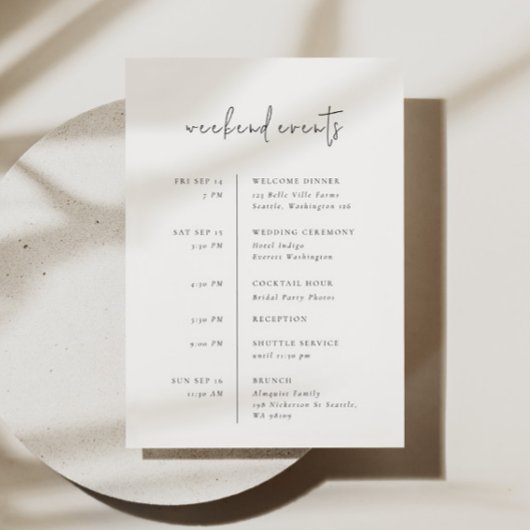 weekend events
FRI SEP 14 WELCOME DINNER
7 PM 123 Belle Ville Farms
Seattle, Washington 126
SAT SEP 15 WEDDING CEREMONY
3:30 PM Hotel Indigo
Everett Washington
4:30 PM COCKTAIL HOUR
Bridal Party Photos
5:30 PM RECEPTION
9:00 PM SHUTTLE SERVICE
until 11:30 pm
SUN SEP 16 BRUNCH
11:30 AM Almquist Family
198 Nickerson St Seattle,
WA 98109